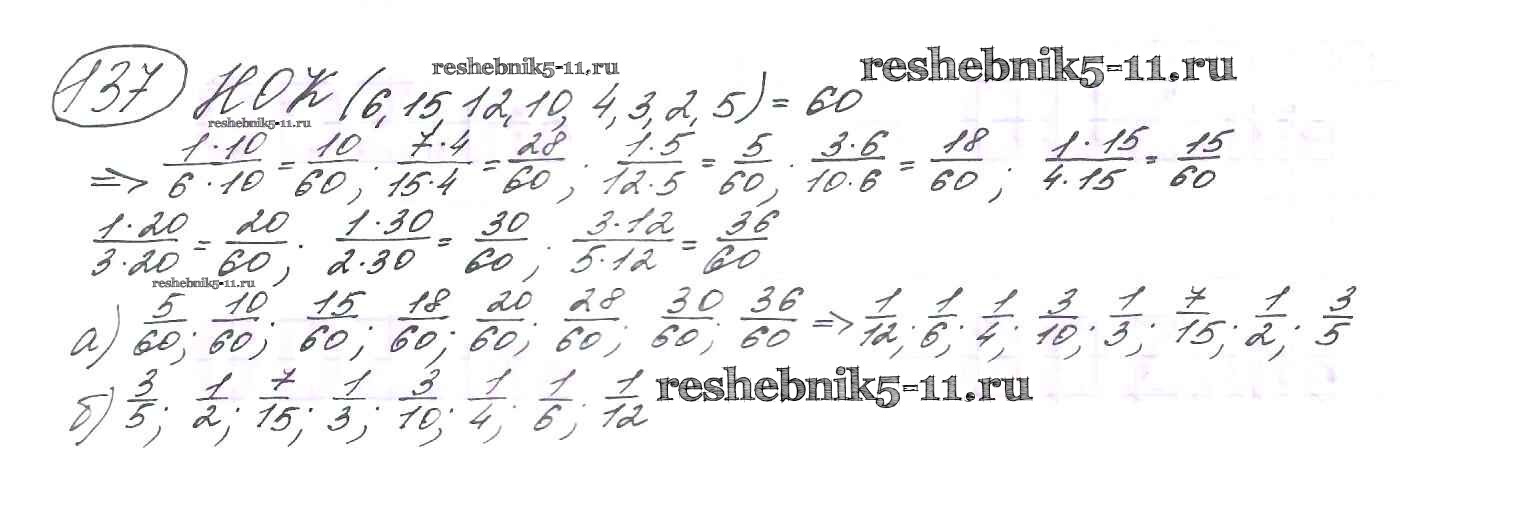 137 НОК (6, 15, 12, 10, 4, 3, 2, 5) = 60
reshebnik5-11.ru
reshebnik5-11.ru
reshebnik5-11.ru
=> 1·10/6·10 = 10/60; 7·4/15·4 = 28/60; 1·5/12·5 = 5/60; 3·6/10·6 = 18/60; 1·15/4·15 = 15/60
1·20/3·20 = 20/60; 1·30/2·30 = 30/60; 3·12/5·12 = 36/60
reshebnik5-11.ru
а) 5/60; 10/60; 15/60; 18/60; 20/60; 28/60; 30/60; 36/60 => 1/12; 1/6; 1/4; 3/10; 1/3; 7/15; 1/2; 3/5
б) 3/5; 1/2; 7/15; 1/3; 3/10; 1/4; 1/6; 1/12
reshebnik5-11.ru